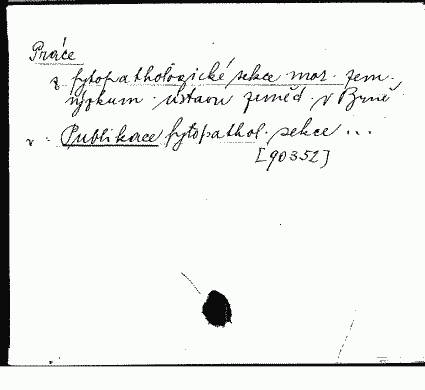 Práce
z fytopathologické sekce mor. zem.
výzkum. ústavu zeměd. v Brně
v. Publikace fytopathol. sekce ...
[90352]